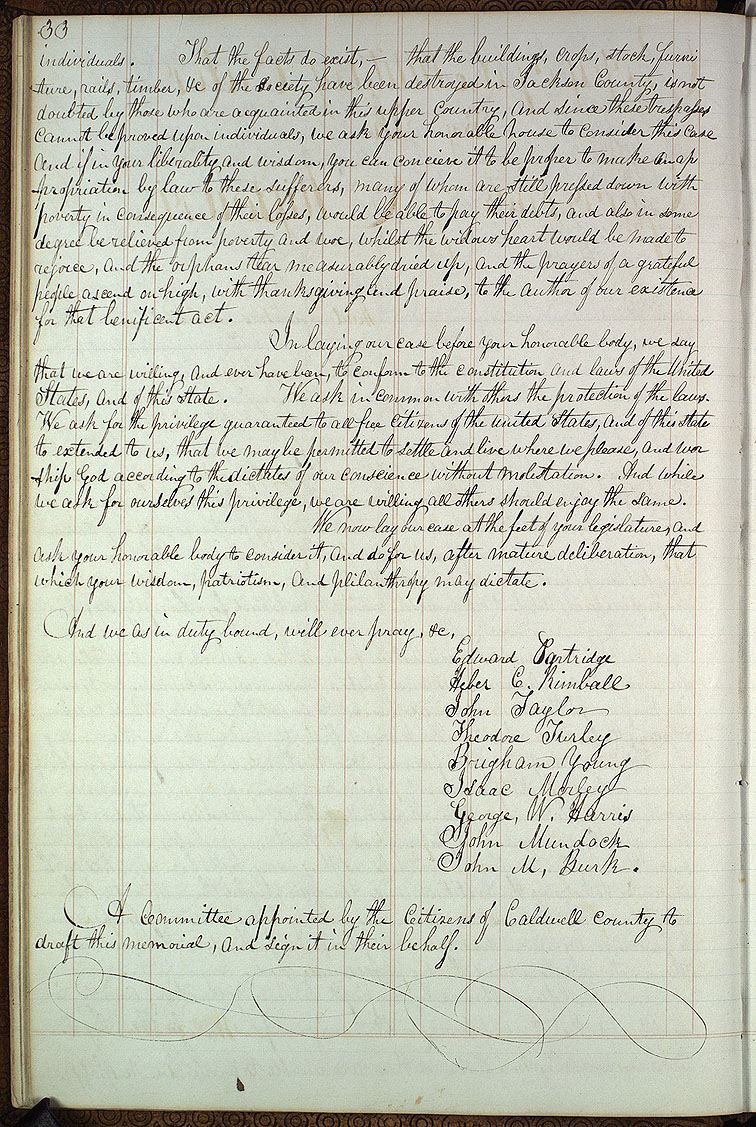 33
individuals. That the facts do exist, — that the buildings, crops, stock, furni
ture, rails, timber, &c of the Society have been destroyed in Jackson County, is not
doubted by those who are acquainted in this upper Country, And since these trespasses
cannot be proved upon individuals, we ask your honorable house to consider this case
And if in your liberality and wisdom, you can concieve it to be proper to make an ap
propriation by law to these sufferers, many of whom are still pressed down with
poverty in consequence of their losses, would be able to pay their debts, and also in some
degree be relieved from poverty and woe, whilst the widows heart would be made to
rejoice, And the orphans tear measurably dried up, and the prayers of a grateful
people ascend on high, with thanksgiving and praise, to the author of our existence
for that benificent act.
In laying our case before your honorable body, we say
that we are willing, and ever have been, to conform to the constitution and laws of the United
States, and of this State. We ask in common with others the protection of the laws.
We ask for the privilege guaranteed to all free citizens of the united States, and of this State
to extended to us, that we may be permitted to settle and live where we please, and wor
ship God according to the dictates of our conscience without molestation. And while
we ask for ourselves this privilege, we are willing all others should enjoy the same.
We now lay our case at the feet of your legislature, and
ask your honorable body to consider it, and do for us, after mature deliberation, that
which your wisdom, patriotism, and philanthropy may dictate.
And we as in duty bound, will ever pray, &c,
Edward Partridge
Heber C. Kimball
John Taylor
Theodore Turley
Brigham Young
Isaac Morley
George, W. Harris
John Murdock
John M, Burk.
A Committee appointed by the Citizens of Caldwell County to
draft this memorial, and sign it in their behalf.